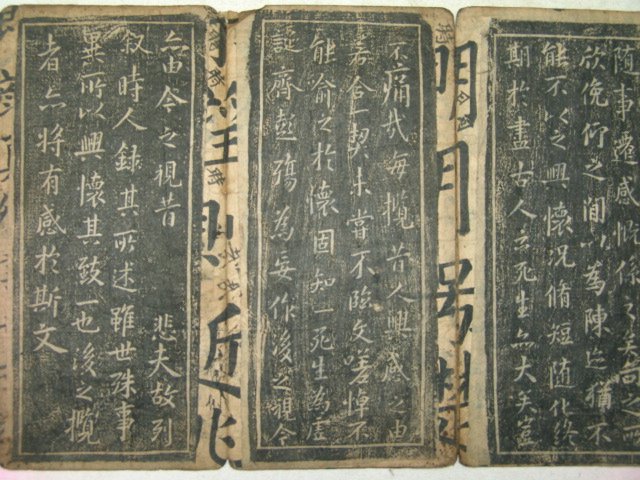 随事遷感慨係之矣向之所
欣俛仰之間以為陳迹猶不
能不以之興懷況脩短随化終
期於盡古人云死生亦大矣豈
不痛哉每攬昔人興感之由
若合一契未嘗不臨文嗟悼不
能喻之於懷固知一死生為虛
誕齊彭殤為妄作後之視今
亦由今之視昔 悲夫故列
叙時人録其所述雖世殊事
異所以興懷其致一也後之攬
者亦将有感於斯文